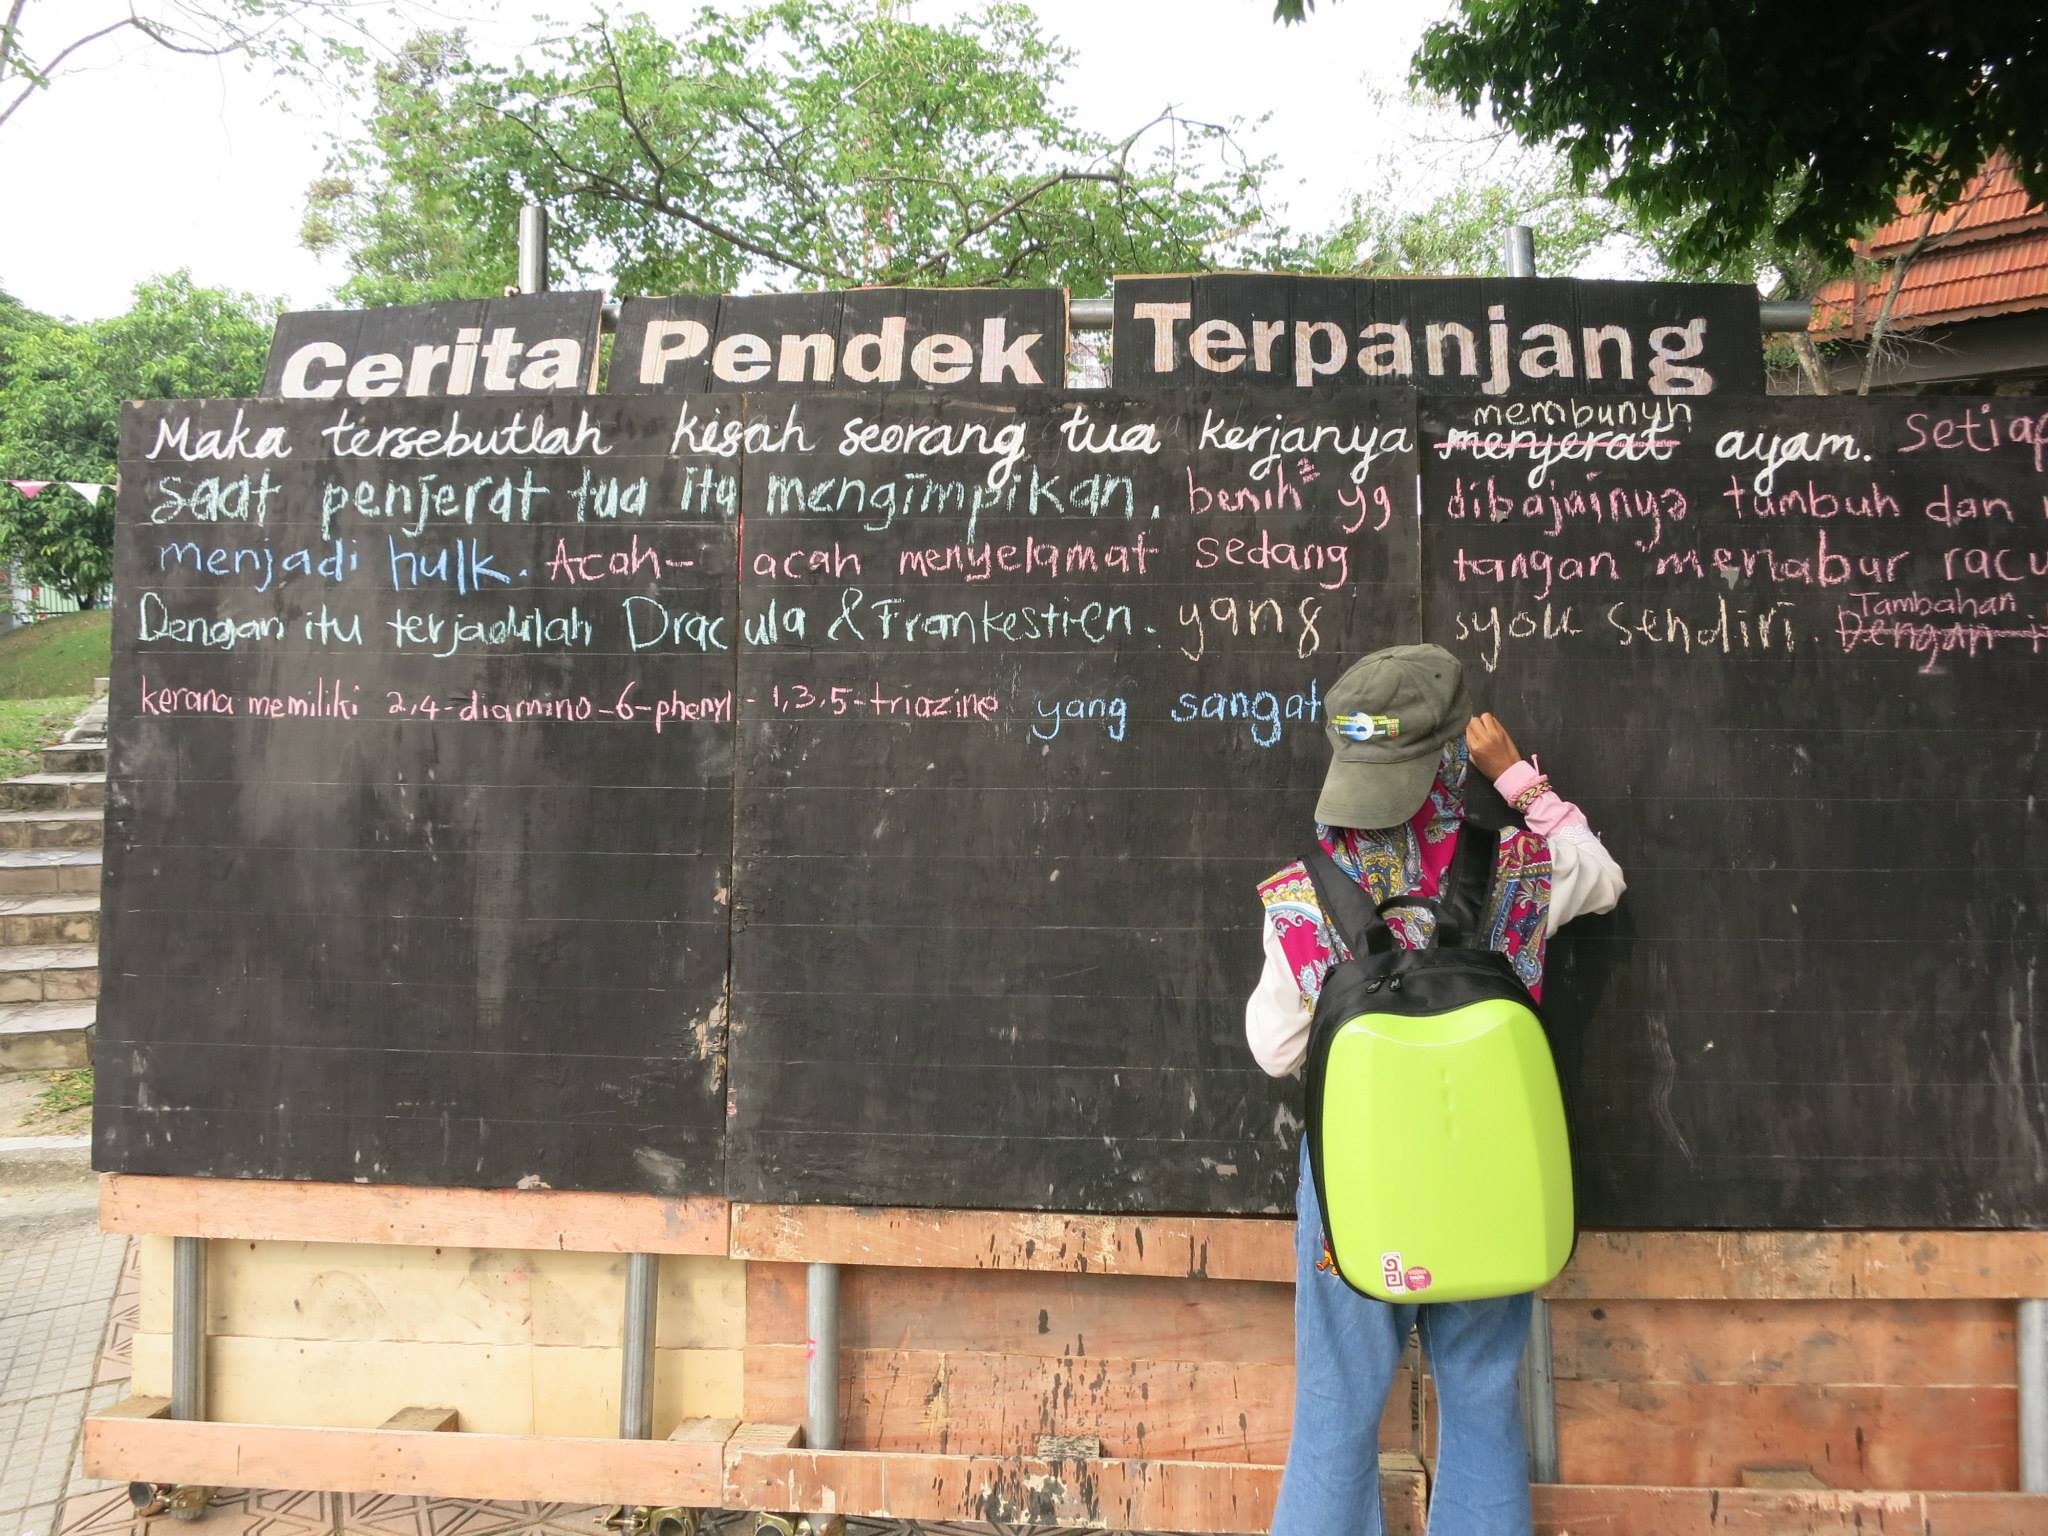 Cerita Pendek Terpanjang
membunuh
Maka tersebutlah kisah seorang tua kerjanya menjerat ayam. Setiap
saat penjerat tua itu mengimpikan. benih yg dibajainya tumbuh dan
menjadi hulk. Acah- acah menyelamat sedang tangan menabur racu
Tambahan
Dengan itu terjadilah Dracula & Frankestien. yang syok sendiri. Dengan
kerana memiliki 2,4-diamino-6-phenyl-1,3,5-triazine yang sangat